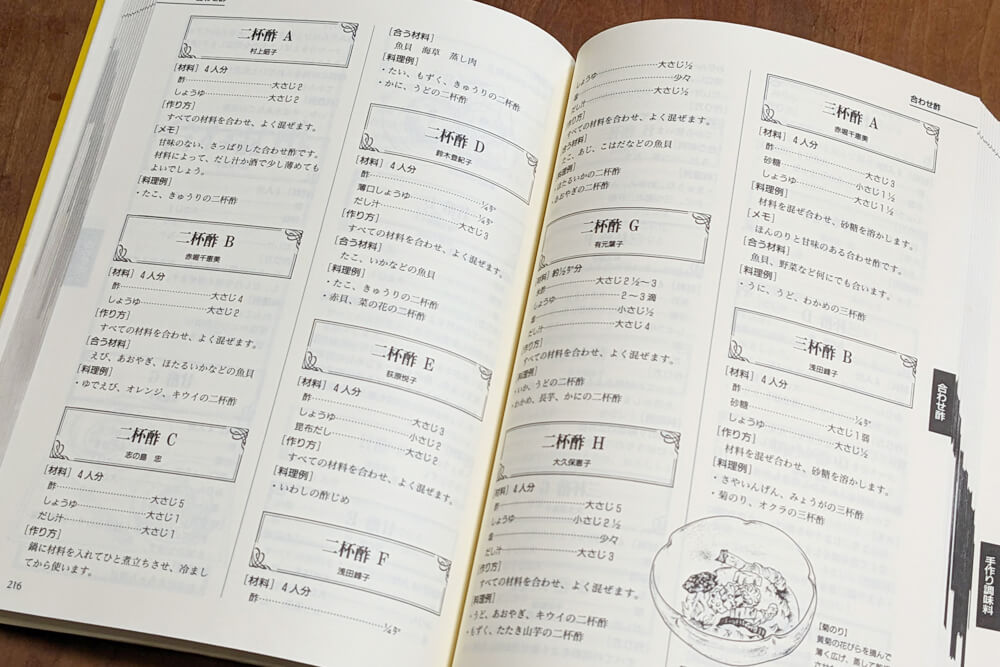 二杯酢 A
村上昭子
[材料] 4人分
酢……大さじ2
しょうゆ……大さじ2
[作り方]
すべての材料を合わせ、よく混ぜます。
[メモ]
甘味のない、さっぱりした合わせ酢です。
材料によって、だし汁か酒で少し薄めても
よいでしょう。
[料理例]
・たこ、きゅうりの二杯酢
二杯酢 B
赤堀千恵美
[材料] 4人分
酢……大さじ4
しょうゆ……大さじ2
[作り方]
すべての材料を合わせ、よく混ぜます。
[合う材料]
えび、あおやぎ、ほたるいかなどの魚貝
[料理例]
・ゆでえび、オレンジ、キウイの二杯酢
二杯酢 C
志の島 忠
[材料] 4人分
酢……大さじ5
しょうゆ……大さじ1
だし汁……大さじ1
[作り方]
鍋に材料を入れてひと煮立ちさせ、冷まし
てから使います。
216
[合う材料]
魚貝 海草 蒸し肉
[料理例]
・たい、もずく、きゅうりの二杯酢
・かに、うどの二杯酢
二杯酢 D
鈴木登紀子
[材料] 4人分
酢……¼カップ
薄口しょうゆ……¼カップ
だし汁……大さじ3
[作り方]
すべての材料を合わせ、よく混ぜます。
[合う材料]
たこ、いかなどの魚貝
[料理例]
・たこ、きゅうりの二杯酢
・赤貝、菜の花の二杯酢
二杯酢 E
荻原悦子
[材料] 4人分
酢……大さじ3
しょうゆ……小さじ2
昆布だし……大さじ2
[作り方]
すべての材料を合わせ、よく混ぜます。
[料理例]
・いわしの酢じめ
二杯酢 F
浅田峰子
[材料] 4人分
酢……¼カップ
しょうゆ……大さじ½
塩……少々
だし汁……大さじ½
[作り方]
すべての材料を合わせ、よく混ぜます。
[合う材料]
たこ、あじ、こはだなどの魚貝
[料理例]
・ほたるいかの二杯酢
・あおやぎの二杯酢
二杯酢 G
有元葉子
[材料] 約½カップ分
米酢……大さじ2½〜3
しょうゆ……2〜3滴
塩……小さじ½
だし汁……大さじ4
[作り方]
すべての材料を合わせ、よく混ぜます。
[料理例]
・いか、うどの二杯酢
・わかめ、長芋、かにの二杯酢
二杯酢 H
大久保恵子
[材料] 4人分
酢……大さじ5
しょうゆ……小さじ2½
塩……少々
だし汁……大さじ3
[作り方]
すべての材料を合わせ、よく混ぜます。
[料理例]
・うど、あおやぎ、キウイの二杯酢
・もずく、たたき山芋の二杯酢
合わせ酢
三杯酢 A
赤堀千恵美
[材料] 4人分
酢……大さじ3
砂糖……小さじ1½
しょうゆ……大さじ1½
[作り方]
材料を混ぜ合わせ、砂糖を溶かします。
[メモ]
ほんのりと甘味のある合わせ酢です。
[合う材料]
魚貝、野菜など何にでも合います。
[料理例]
・うに、うど、わかめの三杯酢
三杯酢 B
浅田峰子
[材料] 4人分
酢……¼カップ
砂糖……大さじ1弱
しょうゆ……大さじ2
[作り方]
材料を混ぜ合わせ、砂糖を溶かします。
[料理例]
・さやいんげん、みょうがの三杯酢
・菊のり、オクラの三杯酢
[菊のり]
黄菊の花びらを摘んで
薄く広げ、蒸して
合わせ酢
手作り調味料